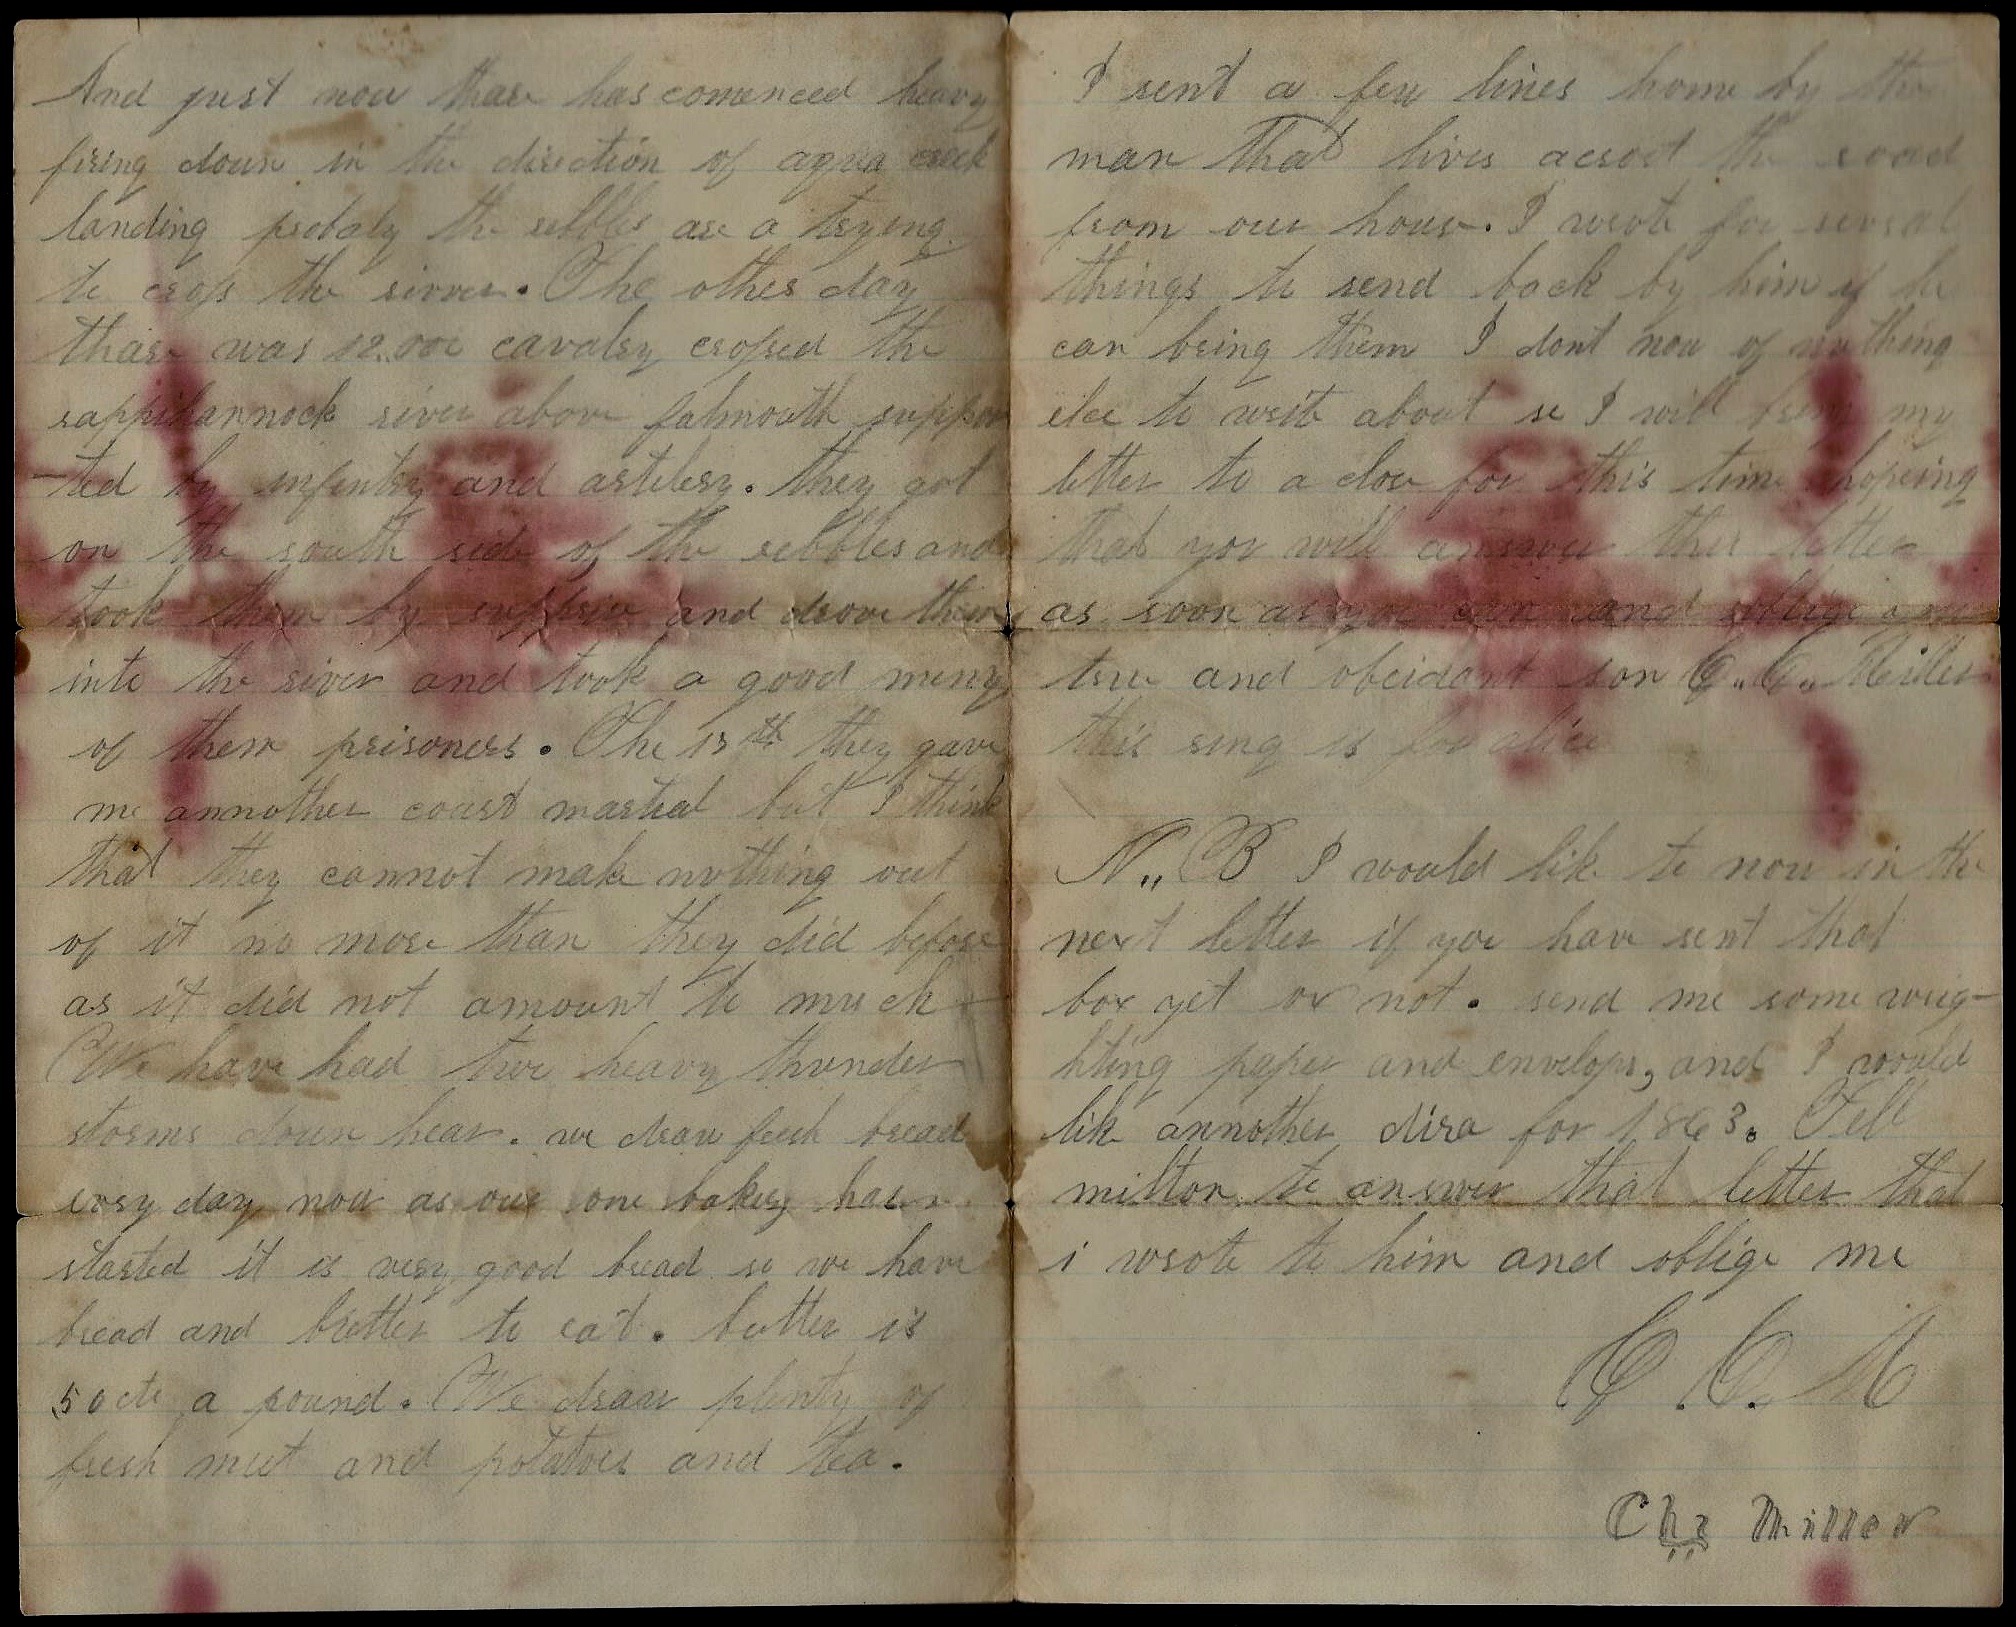 And just now thare has comenced heavy
firing down in the direction of aqua creek
landing probaly the rebbles are a trying
to croſs the rivver. The other day
thare was 12.000 cavalry croſsed the
rappihannock river above falmouth suppor
-ted by infentry and artilery. they got
on the south side of the rebbles and
took them by surpprise and drove them
into the river and took a good meny
of them prisoners. The 13th they gave
me annother court martial but I think
that they cannot make nothing out
of it no more than they did before
as it did not amount to much
We have had two heavy thunder
storms down hear. we draw fresh bread
evry day now as our one bakery has
started it is very good bread so we have
bread and brotter to eat. butter is
50 cts a pound. We draw plenty of
fresh meet and potatoes and tea.
I sent a few lines home by the
man that lives acrost the road
from our hous. I wrote for sevral
things to send back by him if he
can bring them I dont now of nothing
else to write about so I will bring my
letter to a close for this time hopeing
that you will answer this letter
as soon as you can and oblige your
true and obeidant son C.. C.. Miller
this ring is for alice
N,, B I would like to now in the
next letter if you have sent that
box yet or not. send me some wrig-
hting paper and envelops, and I would
like annother dira for 1863. Tell
milton to answer that letter that
i wrote to him and oblige me
C. C. M
Chs Miller